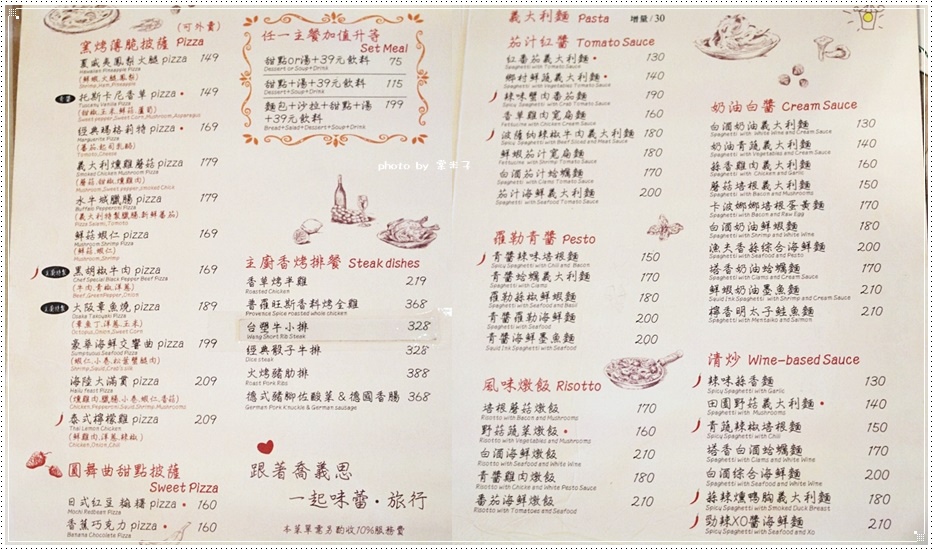 (可外賣)
窯烤薄脆披薩 Pizza
夏威夷鳳梨火腿 pizza 149
Hawaiian Pineapple Pizza
(鮮蝦,火腿,鳳梨)
Shrimp,Ham,Pineapple
托斯卡尼香草 pizza 149
Tuscany Vanilla Pizza
(甜椒,玉米,鮮菇,蘆筍)
Sweet pepper,Sweet Corn,Mushroom,Asparagus
經典瑪格莉特 pizza 169
Margherita Pizza
(番茄,起司,乳酪)
Tomato,Cheese
義大利燻雞蘑菇 pizza 179
Smoked Chicken Mushroom Pizza
(蘑菇,甜椒,燻雞肉)
Mushroom,Sweet pepper,Smoked Chick
水牛城臘腸 pizza 179
Buffalo Pepperoni Pizza
(義大利特製臘腸,新鮮番茄)
Pizza Salami,Tomato
鮮菇蝦仁 pizza 169
Mushroom Shrimp Pizza
(鮮菇,蝦仁)
Mushroom,Shrimp
主廚特製 黑胡椒牛肉 pizza 169
Chef Special Black Pepper Beef Pizza
(牛肉,青椒,洋蔥)
Beef,GreenPepper,Onion
主廚特製 大阪章魚燒 pizza 189
Osaka Takoyaki Pizza
(章魚丁,洋蔥,玉米)
Octopus,Onion,Sweet Corn
豪華海鮮交響曲 pizza 199
Sumptuous Seafood Pizza
(蝦仁,小卷,松葉蟹腿肉)
Shrimp,Squid,Crab's silk
海陸大滿貫 pizza 209
Hailu feast Pizza
(燻雞肉,臘腸,小卷,蝦仁,香菇)
Chicken,Pepperoni,Squid,Shrimp,Mushrooms
泰式檸檬雞 pizza 209
Thai Lemon Chicken
(鮮雞肉,洋蔥,辣椒)
Chicken,Onion,Chili
圓舞曲甜點披薩
Sweet Pizza
日式紅豆麻糬 pizza 160
Mochi Redbean Pizza
香蕉巧克力 pizza 160
Banana Chocolate Pizza
任一主餐加值升等
Set Meal
甜點or湯+39元飲料 75
Dessert or Soup+Drink
甜點+湯+39元飲料 115
Dessert+Soup+Drink
麵包+沙拉+甜點+湯 199
+39元飲料
Bread+Salad+Dessert+Soup+Drink
photo by
主廚香烤排餐 Steak dishes
香草烤半雞 219
Roasted Chicken
普羅旺斯香料烤全雞 368
Provence Spice roasted whole chicken
台塑牛小排 328
Wang Short Rib Steak
經典骰子牛排 328
Dice steak
火烤豬肋排 388
Roast Pork Ribs
德式豬腳佐酸菜 & 德國香腸 368
German Pork Knuckle & German sausage
跟著喬義思
一起味蕾・旅行
本菜單需另酌收10%服務費
義大利麵 Pasta 增量/30
茄汁紅醬 Tomato Sauce
紅番茄義大利麵 130
Spaghetti with Tomato Sauce
鄉村鮮蔬義大利麵 140
Spaghetti with Vegetables and Tomato Sauce
辣味蟹肉番茄麵 190
Spicy Spaghetti with Crab Tomato Sauce
香草雞肉寬扁麵 160
Fettuccine with Chicken Cream Sauce
波隆納辣椒牛肉義大利麵 180
Spicy Spaghetti with Beef Sliced and Tomato Sauce
鮮蝦茄汁寬扁麵 180
Fettuccine with Shrimp Tomato Sauce
白酒茄汁蛤蠣麵 170
Spaghetti with Clams Tomato Sauce
茄汁海鮮義大利麵 200
Spaghetti with Seafood Tomato Sauce
羅勒青醬 Pesto
青醬辣味培根麵 150
Spicy Spaghetti with Chili and Bacon
青醬蛤蠣義大利麵 170
Spaghetti with Clams
羅勒蒜椒鮮蝦麵 180
Spaghetti with Seafood and Basil
青醬羅勒海鮮麵 200
Spaghetti with Seafood
青醬海鮮墨魚麵 200
Squid Ink Spaghetti with Seafood
風味燉飯 Risotto
培根蘑菇燉飯 170
Risotto with Bacon and Mushrooms
野菇蔬菜燉飯 160
Risotto with Vegetables and Mushrooms
白酒海鮮燉飯 210
Risotto with Seafood and White Wine
青醬雞肉燉飯 180
Risotto with Chicke and White Pesto Sauce
番茄海鮮燉飯 210
Risotto with Tomatoes and Seafood
奶油白醬 Cream Sauce
白酒奶油義大利麵 130
Spaghetti with White Wine and Cream Sauce
奶油青蔬義大利麵 140
Spaghetti with Vegetables and Cream Sauce
蒜香雞肉義大利麵 160
Spaghetti with Chicken and Garlic
蘑菇培根義大利麵 150
Spaghetti with Bacon and Mushrooms
卡波娜娜培根蛋黃麵 170
Spaghetti with Bacon and Raw Egg
白酒奶油鮮蝦麵 180
Spaghetti with Shrimp and White Wine
漁夫香蒜綜合海鮮麵 200
Spaghetti with Seafood and Garlic
塔香奶油蛤蠣麵 170
Spaghetti with Clams and Cream Sauce
鮮蝦奶油墨魚麵 210
Squid Ink Spaghetti with Shrimp and Cream Sauce
檸香明太子鮭魚麵 210
Spaghetti with Mentaiko and Salmon
清炒 Wine-based Sauce
辣味蒜香麵 130
Spicy Spaghetti with Garlic
田園野菇義大利麵 140
Spaghetti with Mushrooms
青蔬辣椒培根麵 150
Spicy Spaghetti with Chili
塔香白酒蛤蠣麵 170
Spaghetti with Clams and White Wine
白酒綜合海鮮麵 200
Spaghetti with Seafood and White Wine
蒜辣燻鴨胸義大利麵 180
Spicy Spaghetti with Smoked Duck Breast
勁辣XO醬海鮮麵 210
Spicy Spaghetti with Seafood and Xo